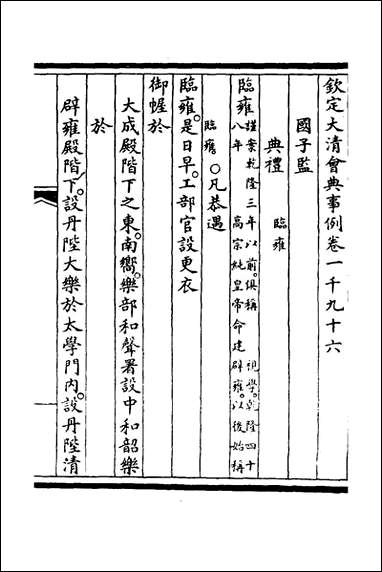 欽定大清會典事例卷一千九十六
國子監
典禮 臨雍
臨雍謹案乾隆三年以前。俱稱 視學。乾隆四十
八年 高宗純皇帝命建 辟雍。以後始稱
臨雍 〇凡恭遇
臨雍。是日早。工部官設更衣
御幄於
大成殿階下之東。南嚮。樂部和聲署設中和韶樂
於
辟雍殿階下。設丹陛大樂於太學門內。設丹陛清